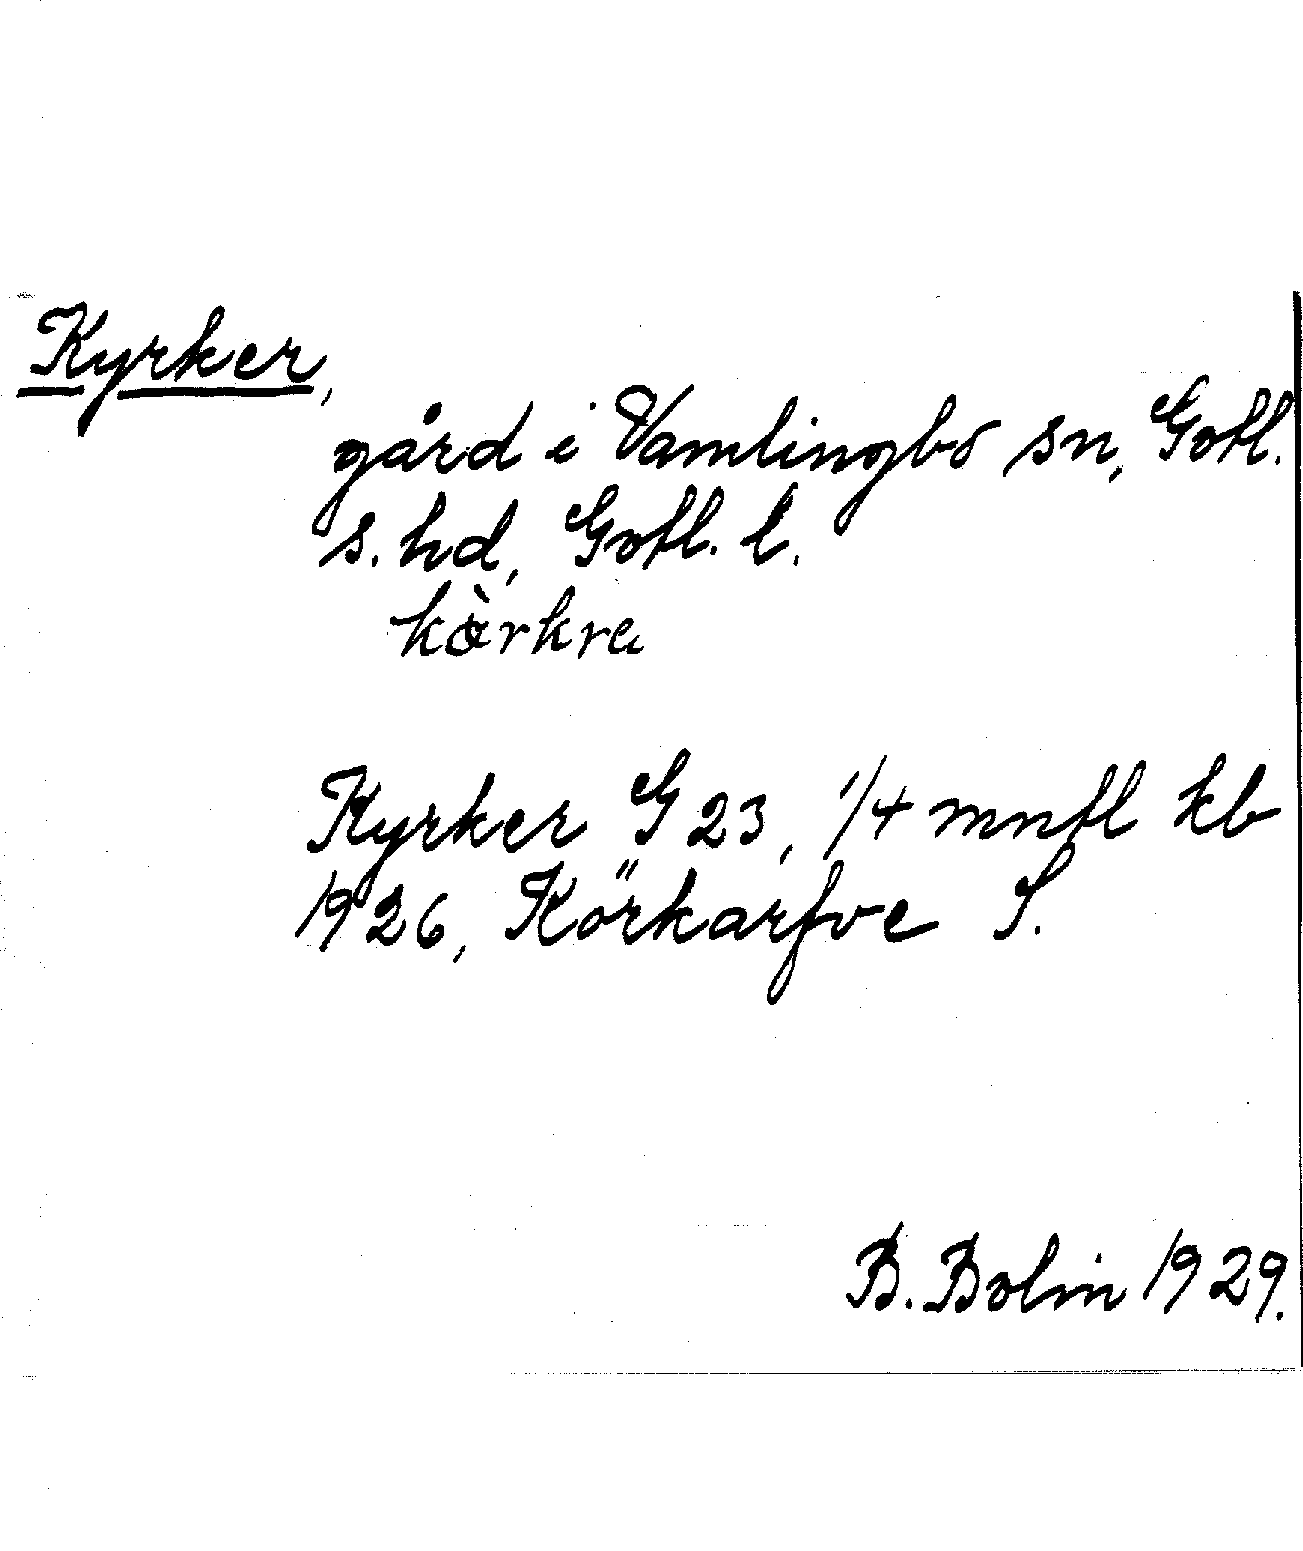 Kyrker,
gård i Vamlingbo sn, Gotl.
s. hd, Gotl. l.
kɵ̀rkra
Kyrker G 23, 1/4 mntl kb
1926, Körkarfve S.
B. Bolin 1929.